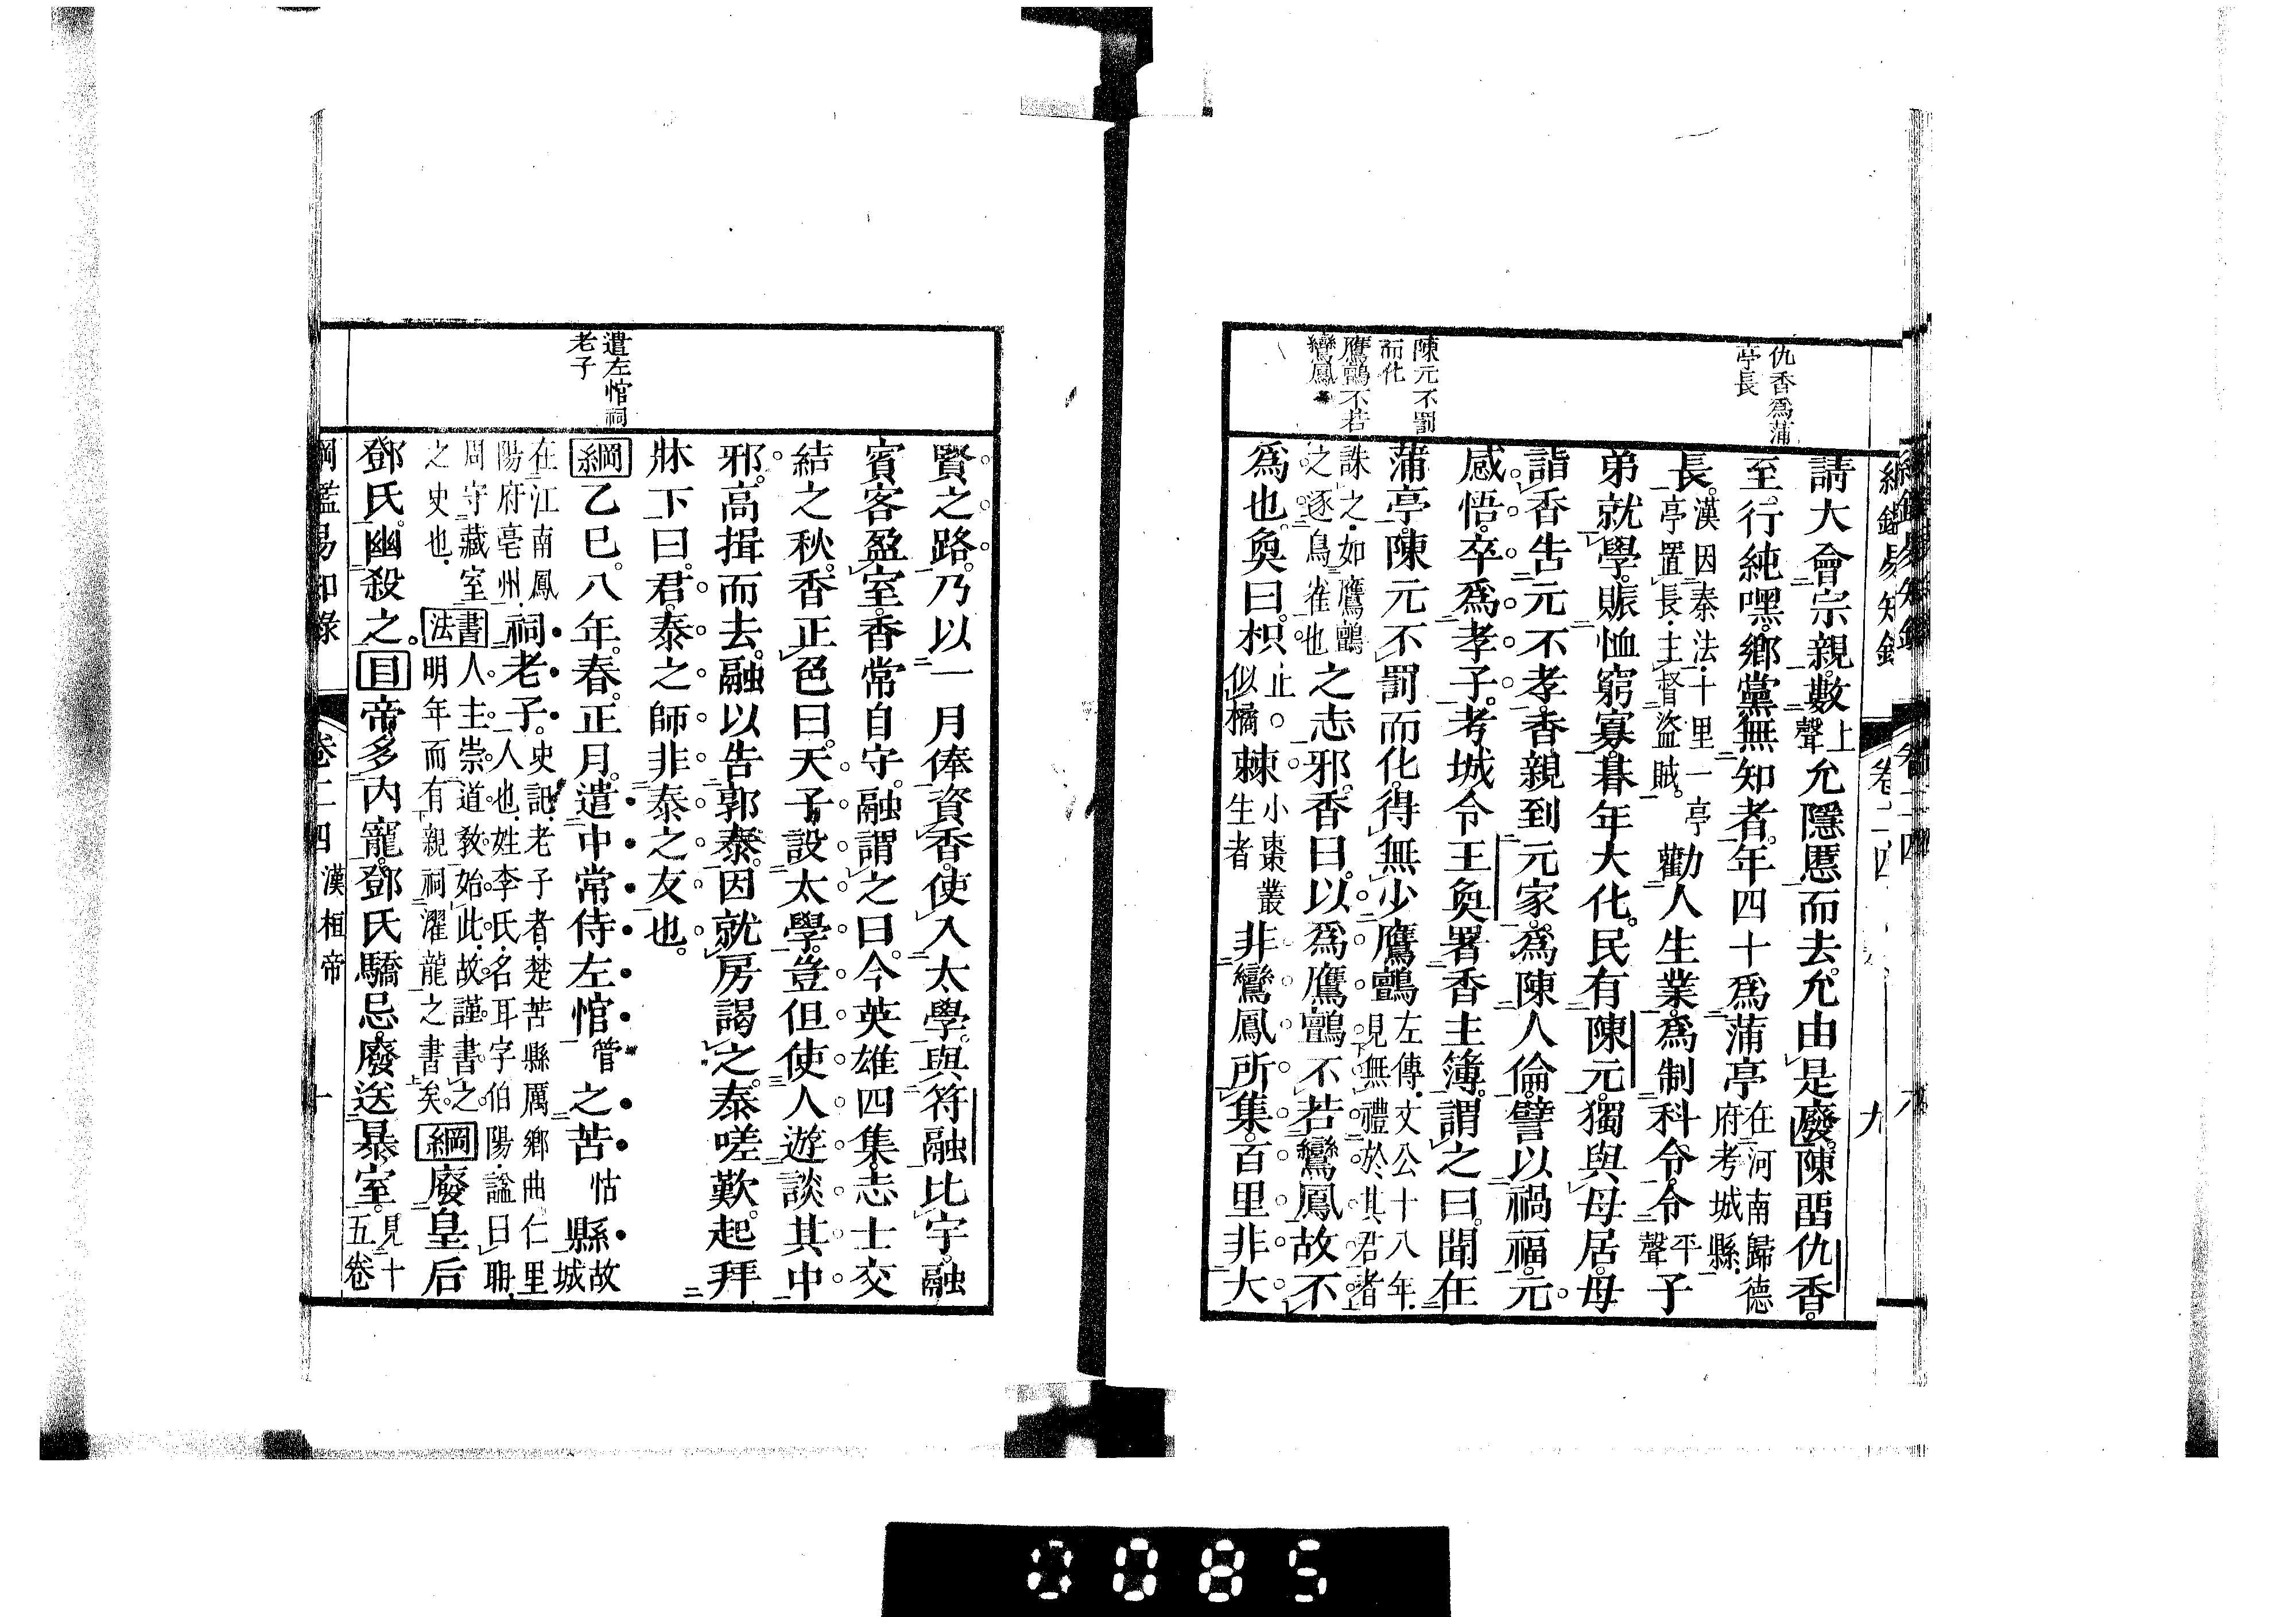 仇香爲蒲
亭長
陳元不罰
而化
鷹鸇不若
鸞鳳
請大會宗親。數上聲允隱慝而去。允由是廢。陳留仇香。
至行純嘿。鄉黨無知者。年四十爲蒲亭在河南歸德府考城縣。
長。漢因秦法。十里一亭亭置長。主督盜賊。勸人生業。爲制科令。令平聲子
弟就學。賑恤窮寡。朞年大化。民有陳元。獨與母居。母
詣香告元不孝。香親到元家。爲陳人倫。譬以禍福。元
感悟。卒爲孝子。考城令王奐署香主簿。謂之曰。聞在
蒲亭。陳元不罰而化。得無少鷹鸇左傳。文公十八年。見無禮於其君者
誅之。如鷹鸇之逐鳥雀也之志邪。香曰。以爲鷹鸇不若鸞鳳。故不
爲也。奐曰。枳止。似橘棘小棗叢生者非鸞鳳所集。百里非大
卷二四
九
遣左悺祠
老子
賢之路。乃以一月俸資香。使入太學。與符融比宇。融
賓客盈室。香常自守。融謂之曰。今英雄四集。志士交
結之秋。香正色曰。天子設太學。豈但使人遊談其中
邪。高揖而去。融以告郭泰。因就房謁之。泰嗟歎。起拜
牀下曰。君。泰之師。非泰之友也。
綱乙巳。八年。春。正月。遣中常侍左悺管之苦怙縣故城
在江南鳳陽府亳州。祠老子。史記。老子者。楚苦縣厲鄉曲仁里人也。姓李氏。名耳字伯陽。謚曰聃。
周守藏室之史也。書法人主崇道教。始此。故謹書之。明年而有親祠濯龍之書矣。綱廢皇后
鄧氏。幽殺之。目帝多內寵。鄧氏驕忌。廢送暴室。見十五卷
綱鑑易知錄
卷二四
漢桓帝
十
0085